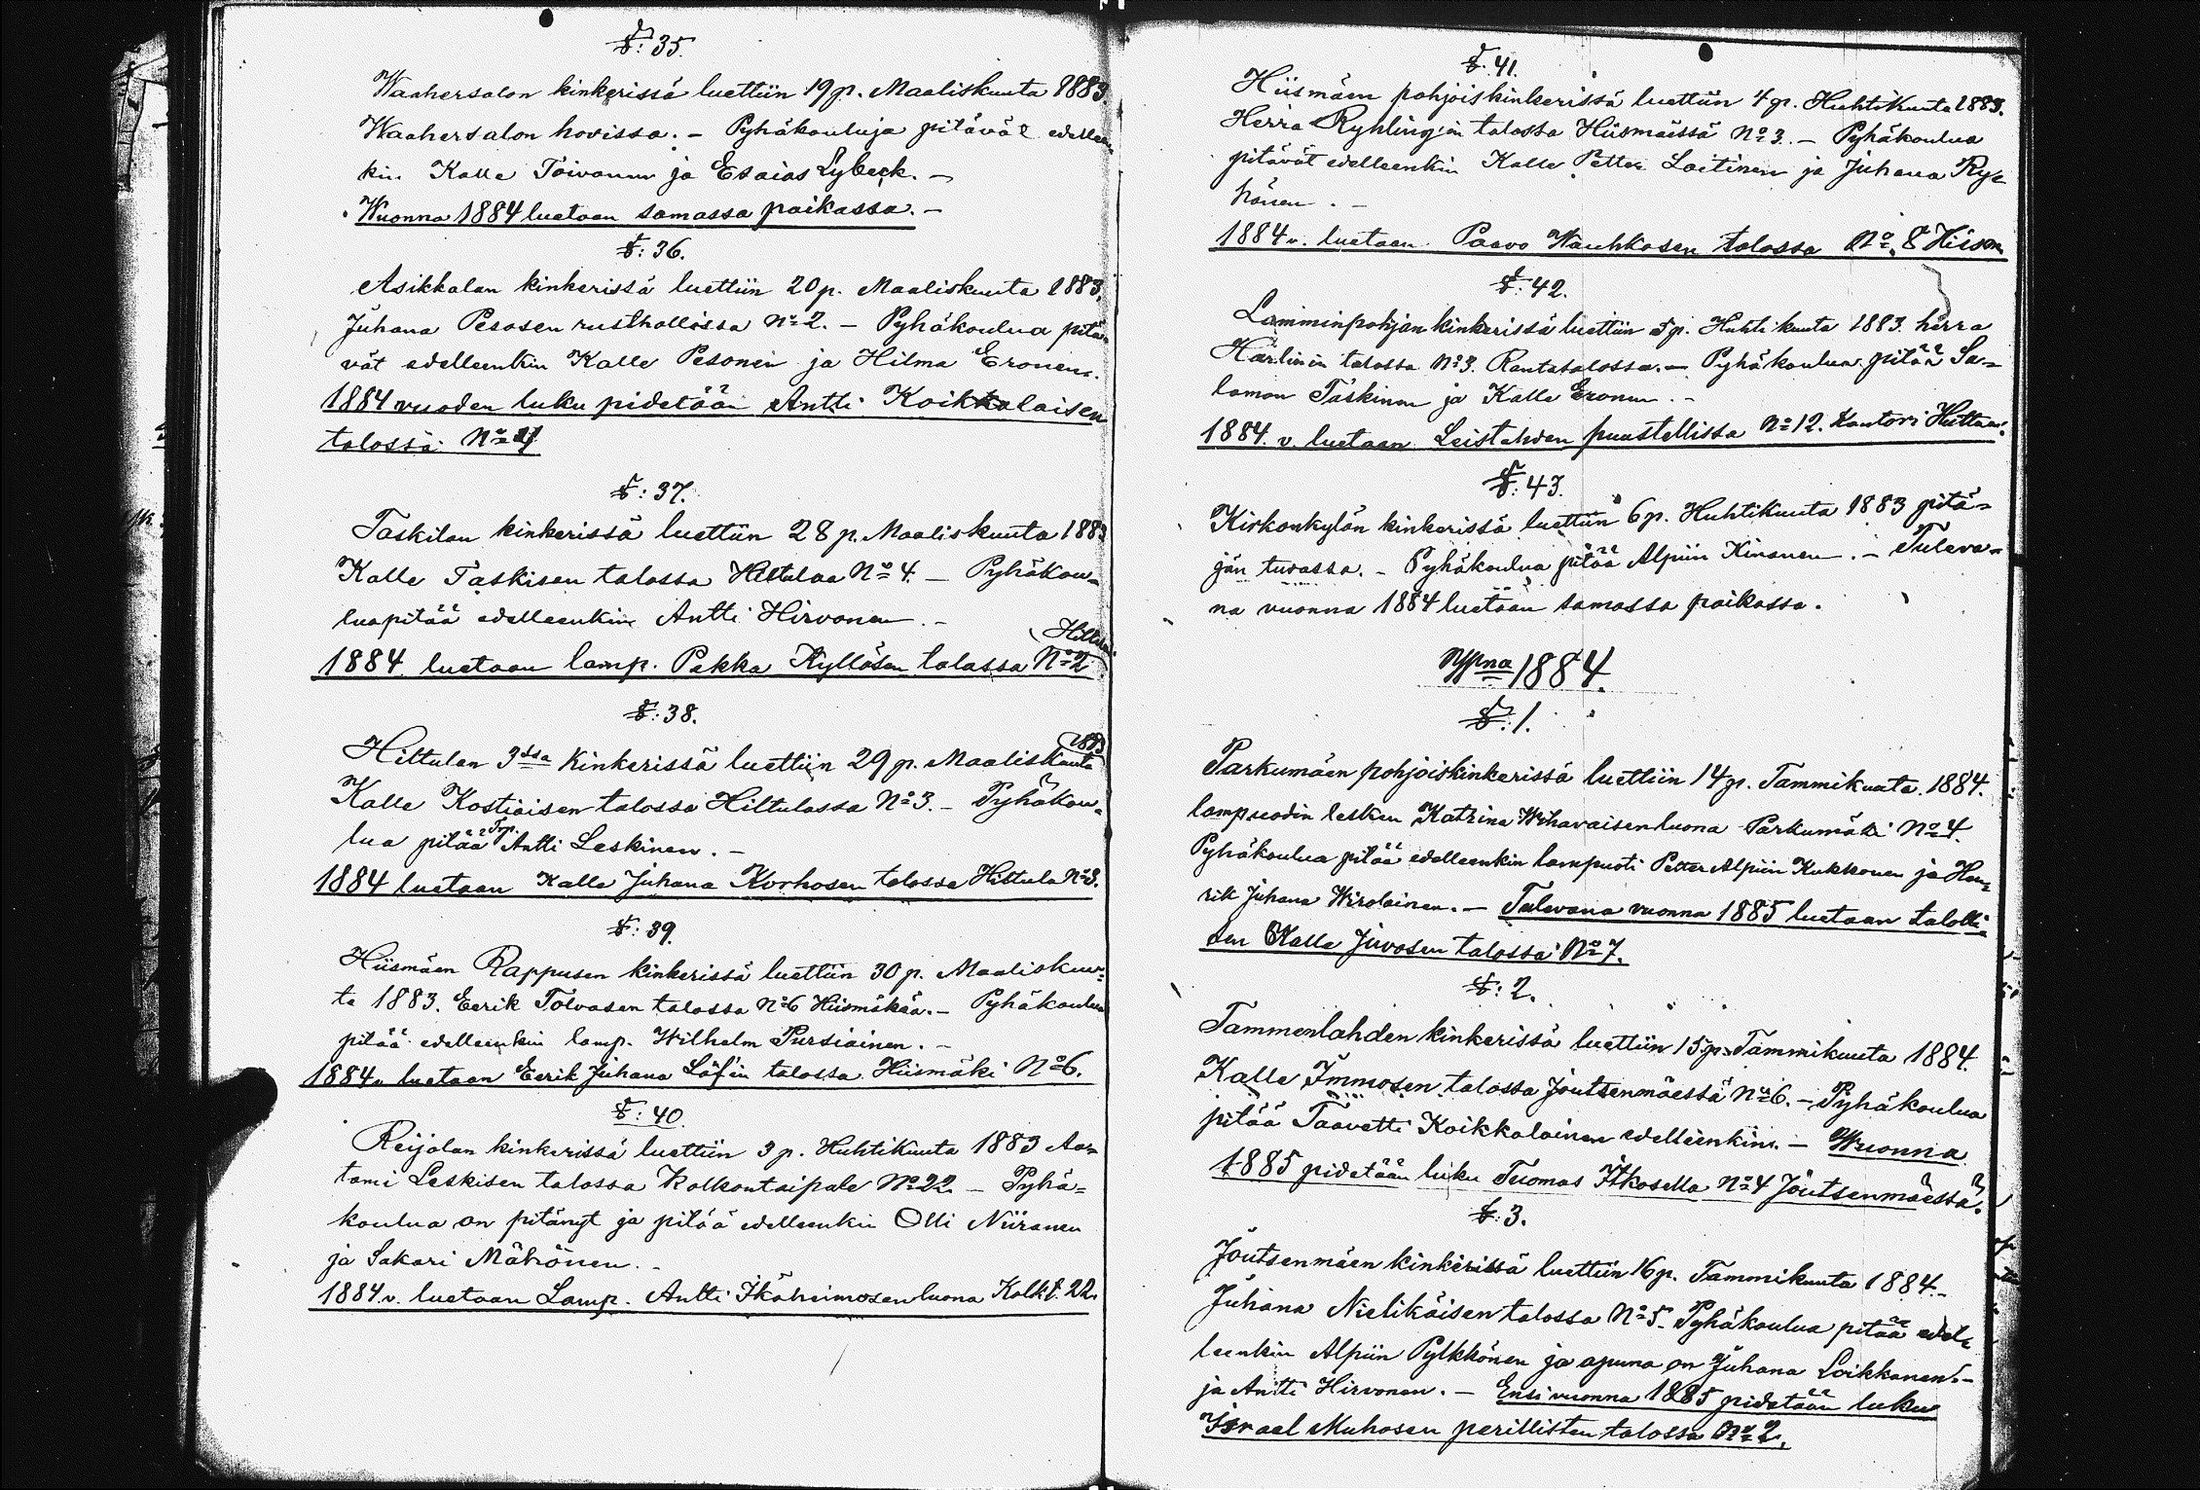 §: 35.
Waahersalon kinkerissä luettiin 19 p. Maaliskuuta 1883.
Waahersalon hovissa. – Pyhäkouluja pitävät edelleen-
kin Kalle Toivanen ja Esaias Lybeck. –
Wuonna 1884 luetaan samassa paikassa. –
§: 36.
Asikkalan kinkerissä luettiin 20 p. Maaliskuuta 1883,
Juhana Pesosen rusthollissa No 2. – Pyhäkoulua pitä-
vät edelleenkin Kalle Pesonen ja Hilma Eronen.
1884 vuoden luku pidetään Antti Koikkalaisen
talossa No 4
§: 37.
Taskilan kinkerissä luettiin 28 p. Maaliskuuta 1883
Kalle Taskisen talossa Hiltulaa No 4. – Pyhäkou-
lua pitää edelleenkin Antti Hirvonen. –
Hiltula
1884 luetaan lamp. Pekka Kyllösen talassa No 2
§: 38.
1883
Hiltulan 3ssa kinkerissä luettiin 29 p. Maaliskuuta
Kalle Kostiaisen talossa Hiltulassa No 3. – Pyhäkou-
lua pitää Trp. Antti Leskinen. –
1884 luetaan Kalle Juhana Korhosen talossa Hiltula No 3.
§: 39.
Hiismäen Rappusen kinkerissä luettiin 30 p. Maaliskuu-
ta 1883. Eerik Tolvasen talossa No 6 Hiismäkeä. – Pyhäkoulua
pitää edelleenkin lamp. Wilhelm Pursiainen. –
1884 v. luetaan Eerik Juhana Löf'in talossa Hiismäki No 6.
§: 40.
Reijolan kinkerissä luettiin 3 p. Huhtikuuta 1883 Aa-
tami Leskisen talossa Kolkontaipale No 22. – Pyhä-
koulua on pitänyt ja pitää edelleenkin Olli Niiranen
ja Sakari Mähönen. –
1884 v. luetaan Lamp. Antti Ikäheimosen luona Kolkt. 22.
§. 41.
Hiismäen pohjoiskinkerissä luettiin 4 p. Huhtikuuta 1883.
Herra Ryhling'in talossa Hiismäessä No 3. – Pyhäkoulua
pitävät edelleenkin Kalle Petter Laitinen ja Juhana Ry-
hänen. –
1884 v. luetaan Paavo Wauhkosen talossa No 8 Hiism.
§: 42.
Lamminpohjan kinkerissä luettiin 5 p. Huhtikuuta 1883. herra
Härlin'in talossa No 3. Rantasalossa. – Pyhäkoulua pitää Sa-
lomon Täskinen ja Kalle Eronen. –
1884. v. luetaan Leistahden puustellissa No 12. Kantori
§: 43.
Kirkonkylän kinkerissä luettiin 6 p. Huhtikuuta 1883 pitä-
jän tuvassa. – Pyhäkoulua pitää Alpiin Kinanen. – Tuleva-
na vuonna 1884 luetaan samassa paikassa.
Wnna 1884.
§: 1.
Parkumäen pohjoiskinkerissä luettiin 14 p. Tammikuuta. 1884.
lampuodin lesken Katrina Wihavaisen luona Parkumäki No 4.
Pyhäkoulua pitää edelleenkin lampuoti Petter Alpiin Kukkonen ja Hen-
rik Juhana Wirolainen. – Tulevana vuonna 1885 luetaan talolli-
sen Kalle Juvosen talossa No 7.
§: 2.
Tammenlahden kinkerissä luettiin 15 p. Tammikuuta 1884.
Kalle Immosen talossa Joutsenmäessä No 6. – Pyhäkoulua
pitää Taavetti Koikkalainen edelleenkin. – Wuonna
1885 pidetään luku Tuomas Itkosella No 4 Joutsenmäessä.
§: 3.
Joutsenmäen kinkerissä luettiin 16 p. Tammikuuta 1884. –
Juhana Nielikäisen talossa No 5. Pyhäkoulua pitää edel-
leenkin Alpiin Pylkkönen ja apuna on Juhana Loikkanen –
ja Antti Hirvonen. – Ensi vuonna 1885 pidetään luku
Israel Muhosen perillisten talossa No 2.